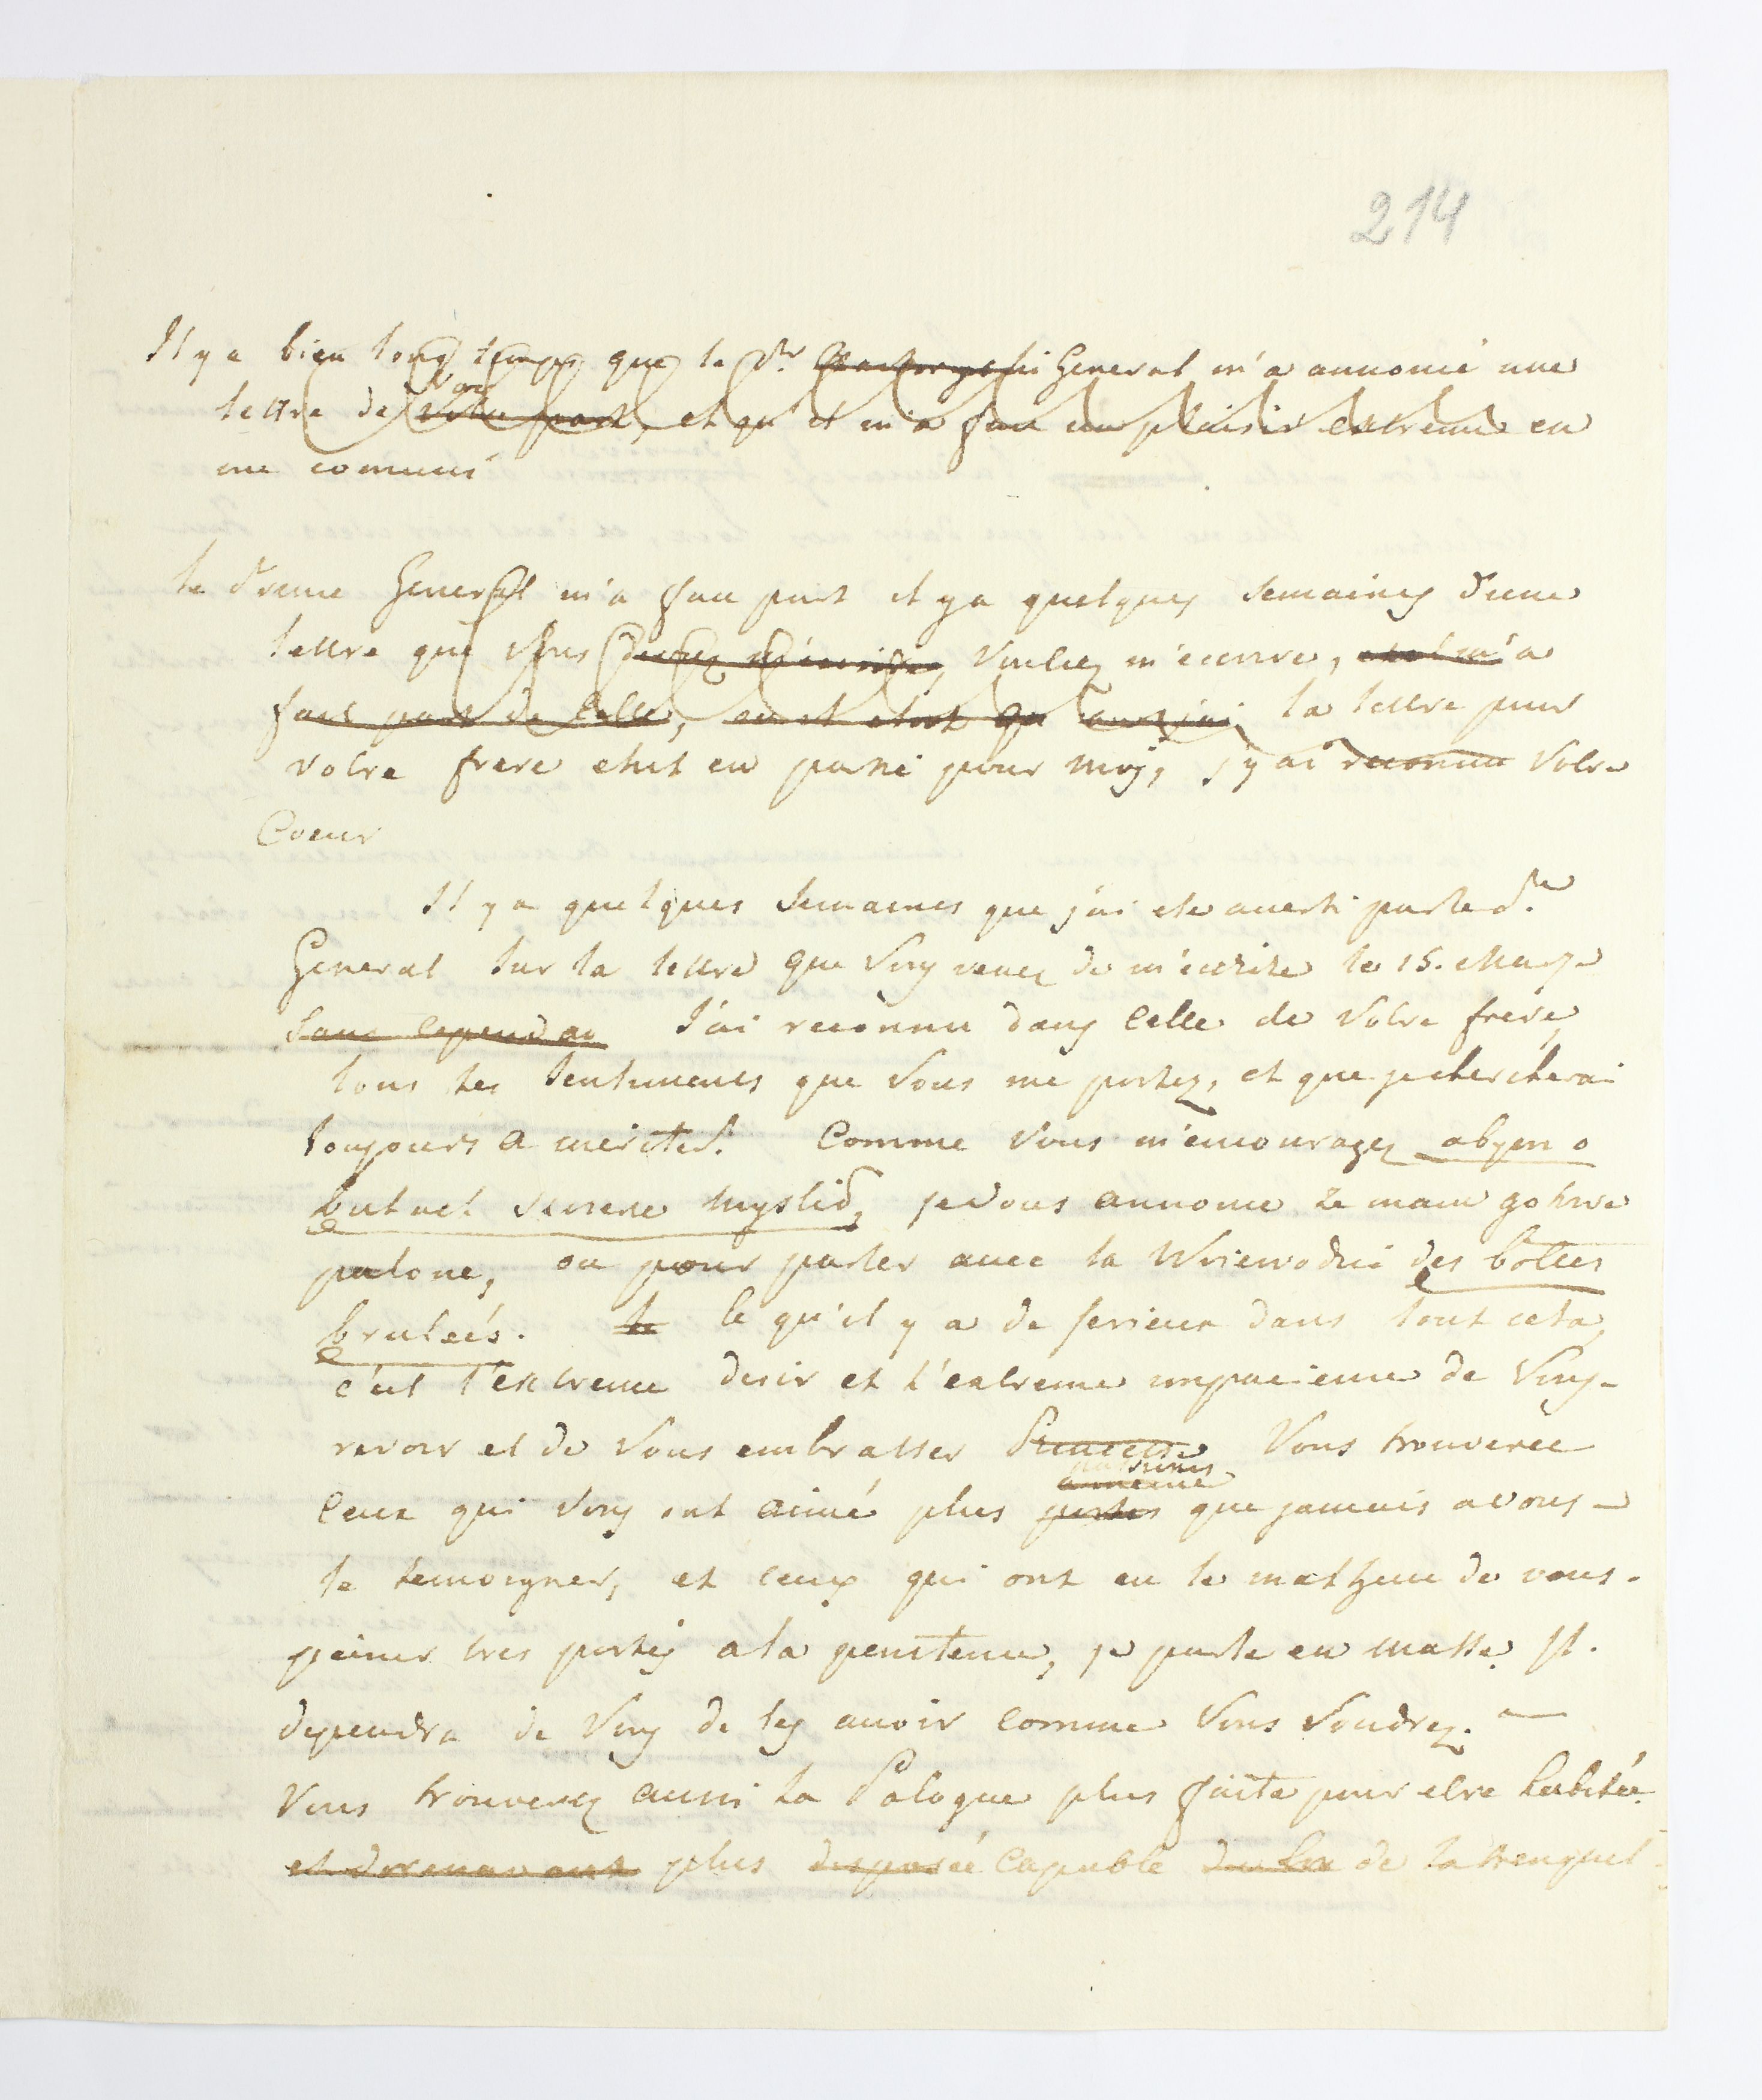 214
Il y a bien long temps que le Pr. Czartoryski General m'a annoncé une
lettre de votre part, Vous et qu'il m'a fait un plaisir extreme en
me comuni
le Prince General m'a fait part il y a quelques semaines d'une
lettre que Vous deviez m'écrire, Vouliez m'ecrire, et il m'a
fait part de celle, la lettre pour
votre frere etoit en partie pour moy, j'y ai reconnu Votre
Coeur
Il y a quelques Semaines que j'ai eté averti par le Pce
General sur la lettre que Vous venez de m'ecrire le 15. May
sans cependan J'ai reconnu dans celle de Votre frere
tous les sentiments que Vous me portez, et que je chercherai
toujours a meriter. Comme Vous m'encouragez abym o
butach szczerze myslił, je Vous annonce ze mam gotowe
palone, ou pour parler avec la Woiewodzi des bottes
brulées. le Ce qu'il y a de serieux dans tout cela,
c'est l'extreme desir et l'extreme impacience de Vous
revoir et de Vous embrasser Princesse Vous trouverez
ceux qui Vous ont aimé plus portés que jamais a vous
le temoigner, et ceux qui ont eu le malheur de vous
peiner tres portés a la penitence, je parle en masse. Il
dependra de Vous de les avoir comme Vous Voudrez.
Vous trouverez aussi la Pologne plus faite pour etre habitée
et dorenavant plus disposée capable de la tranquil